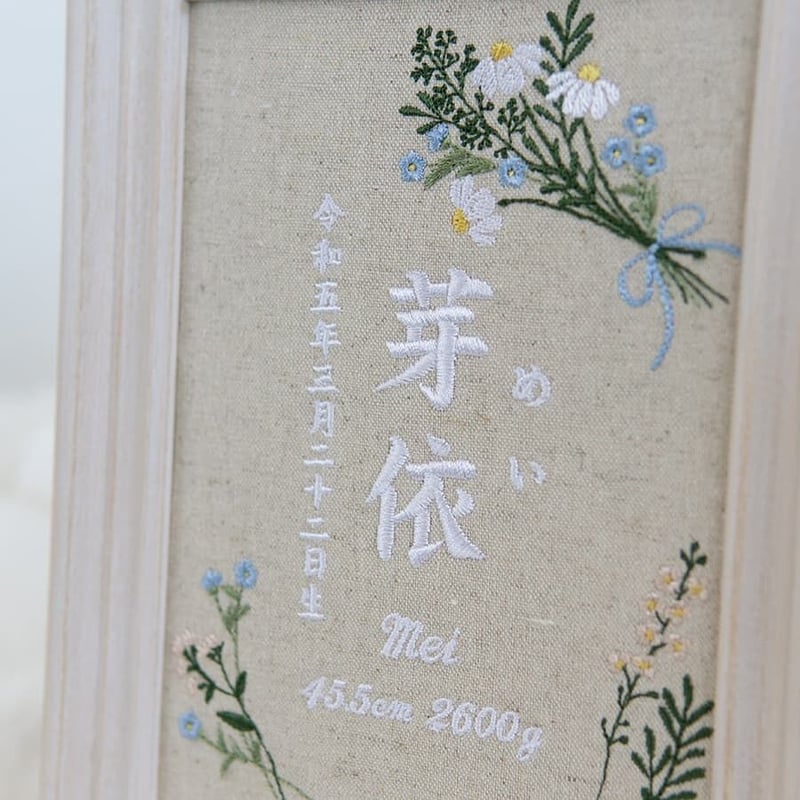 めい
芽依
令和五年三月二十二日生
Mei
45.5cm 2600g